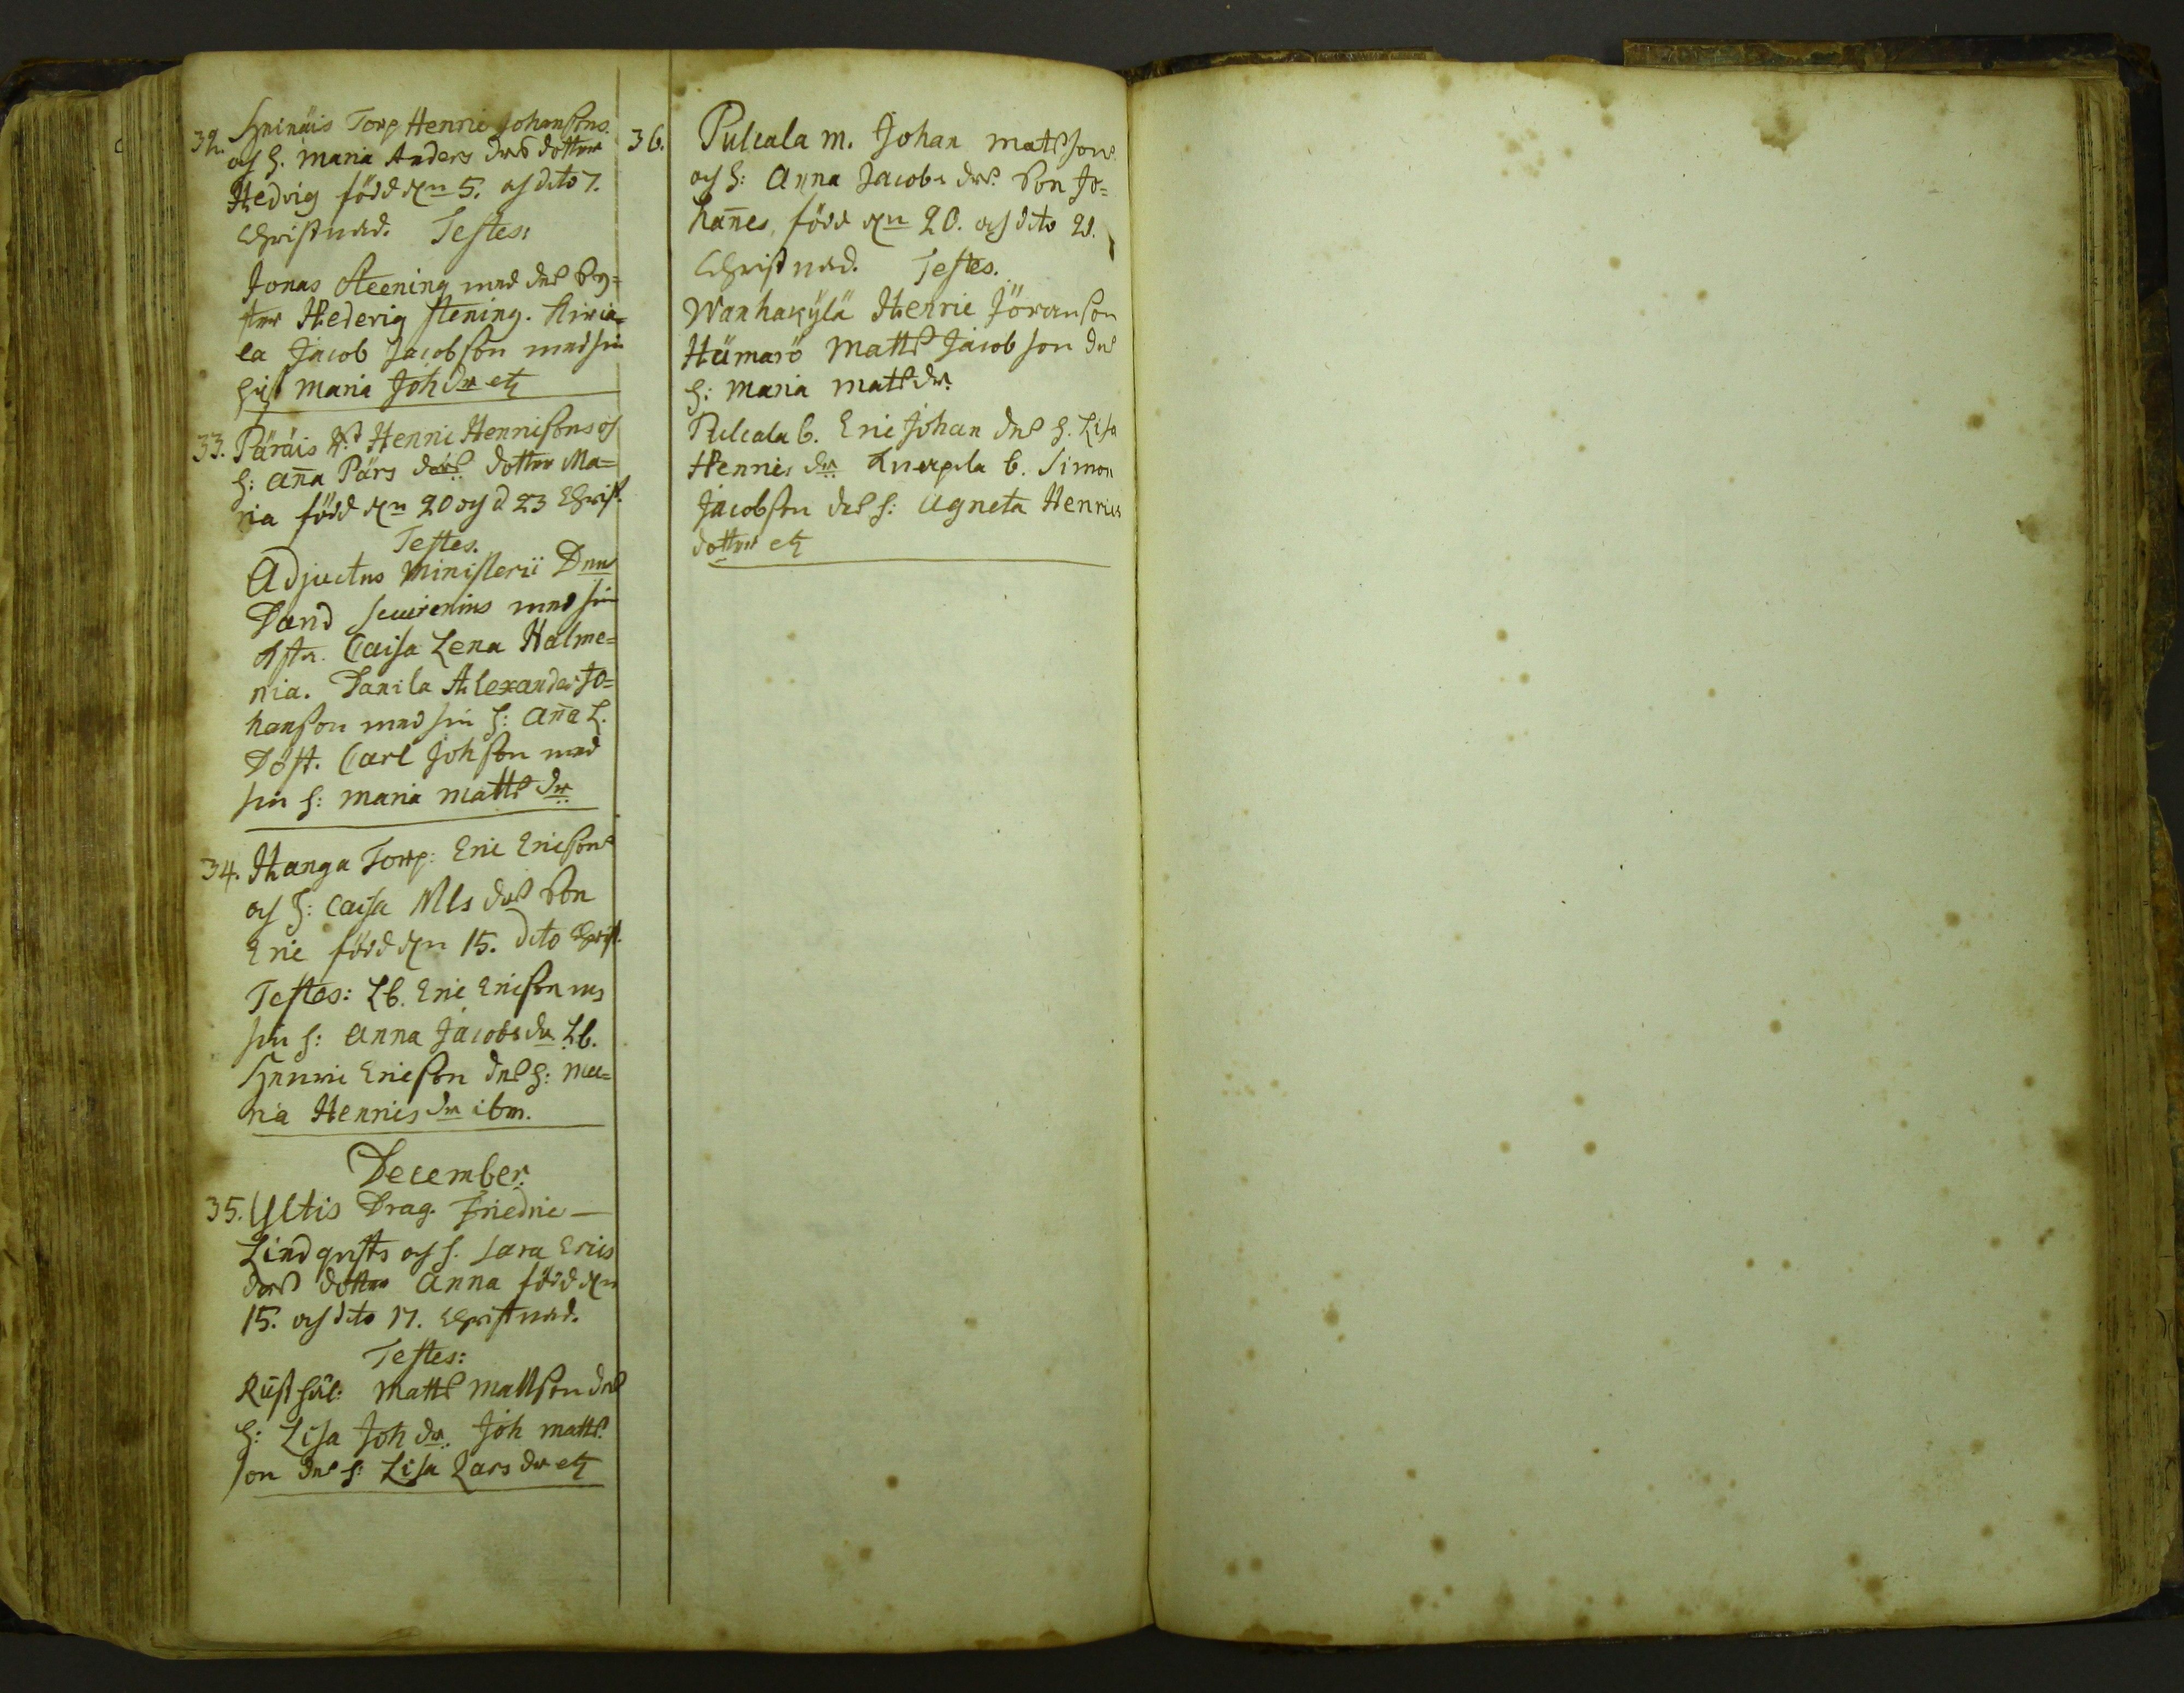 32. Heinäis Torp Henric Johansons
och H. Maria Anders drs dotter
Hedvig född den 5. och dito 7.
Christnad. Testes:
Jonas Steening med dess Sy=
ster Hedevig Stening. Kiria=
la Jacob Jacobson med sin
Hust Maria Joh dr etc
33. Päräis Henric Henricsons och
H: Anna Pärs drs dotter Ma=
ria född den 20 och d 23 Christ.
Testes.
Adjuctus Ministerii Dnus
med sin
Caisa Lena Halme=
nia. Danila Alexander Jo=
hanson med sin H: Anna L.
Döft. Carl Johson med
sin H: Maria Matts dr
34. Hanga Torp: Eric Ericsons
och H: Caisa Nils drs Son
Eric född den 15. dito Christ.
Testes: Lb. Eric Ericson m
sin H: Anna Jacobs dr Lb.
Henric Ericson dess H: Ma=
ria Henrics dr ibm.
December.
35. Yltis Drag. Friedric
Lindqvists och H. Sara Erics
drs dotter Anna född den
15. och dito 17. Christnad.
Testes:
Rusthål: Matts Mattson dess
H: Lisa Joh dr. Joh Matts
son dess H: Lisa Lars dr etc
36. Pulcala m. Johan Matssons
och H: Anna Jacobs drs Son Jo=
hannes, född den 20. och dito 21.
Christnad. Testes.
Wanhakylä Henric Jöranson
Hümarö Matts Jacobson dess
H: Maria Matts dr.
Pulcala b. Eric Johan dess H. Lisa
Henrics dr b. Simon
Jacobson dess H: Agneta Henrics
dotter etc